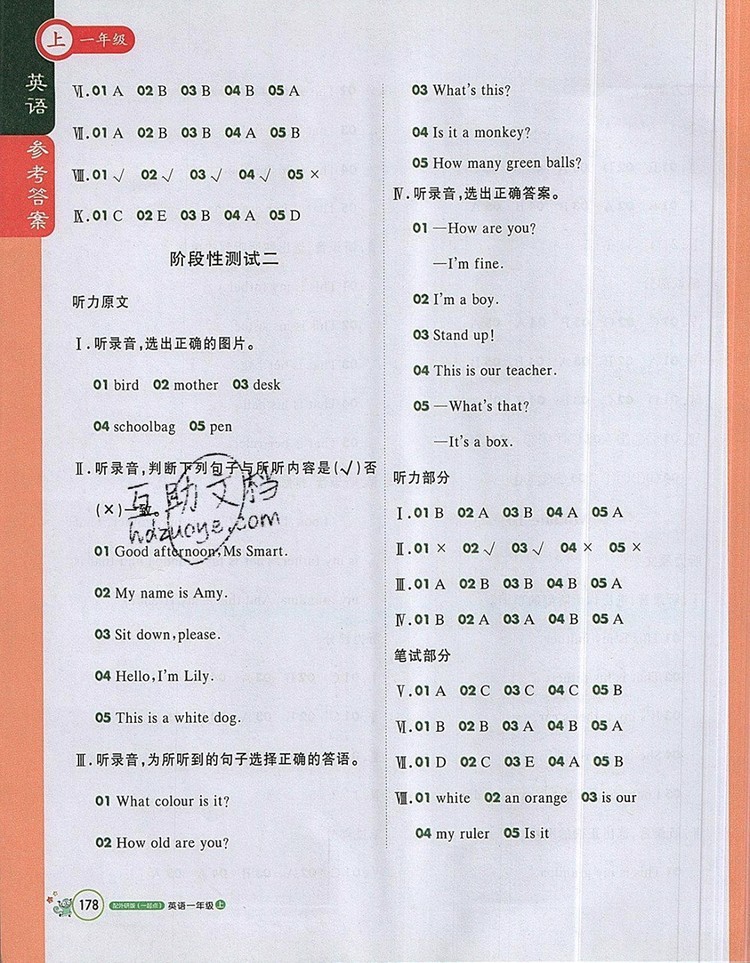 上 一年级
英语
参考答案
Ⅵ.01 A 02 B 03 B 04 B 05 A
Ⅶ.01 A 02 B 03 B 04 A 05 B
Ⅷ.01 √ 02 √ 03 √ 04 √ 05 ×
Ⅸ.01 C 02 E 03 B 04 A 05 D
阶段性测试二
听力原文
Ⅰ.听录音,选出正确的图片。
01 bird 02 mother 03 desk
04 schoolbag 05 pen
Ⅱ.听录音,判断下列句子与所听内容是(√)否
(×)一致。
01 Good afternoon,Ms Smart.
02 My name is Amy.
03 Sit down,please.
04 Hello,I'm Lily.
05 This is a white dog.
Ⅲ.听录音,为所听到的句子选择正确的答语。
01 What colour is it?
02 How old are you?
03 What's this?
04 Is it a monkey?
05 How many green balls?
Ⅳ.听录音,选出正确答案。
01 —How are you?
—I'm fine.
02 I'm a boy.
03 Stand up!
04 This is our teacher.
05 —What's that?
—It's a box.
听力部分
Ⅰ.01 B 02 A 03 B 04 A 05 A
Ⅱ.01 × 02 √ 03 √ 04 × 05 ×
Ⅲ.01 A 02 B 03 B 04 B 05 A
Ⅳ.01 B 02 A 03 A 04 B 05 A
笔试部分
Ⅴ.01 A 02 C 03 C 04 C 05 B
Ⅵ.01 B 02 B 03 A 04 B 05 A
Ⅶ.01 D 02 C 03 E 04 A 05 B
Ⅷ.01 white 02 an orange 03 is our
04 my ruler 05 Is it
互助文档
hdzuoye.com
178 配外研版(一起点) 英语一年级 上